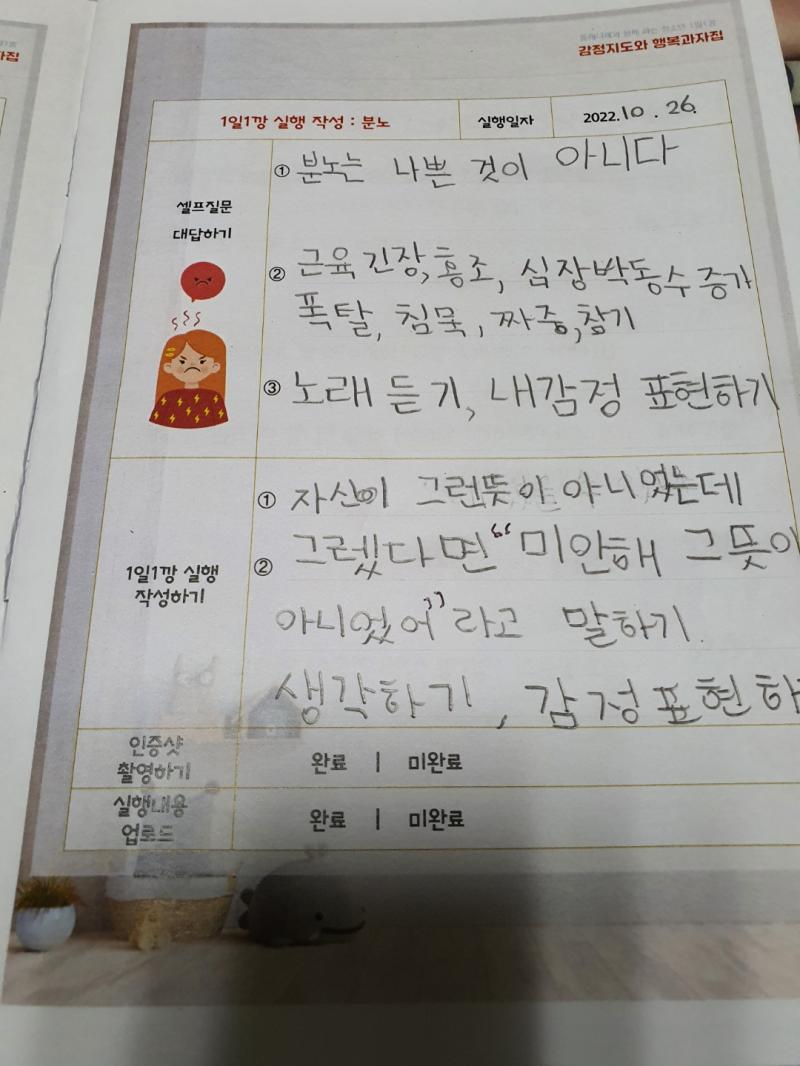 감정지도와 행복과자집
1일1깡 실행 작성 : 분노
실행일자
2022.10.26.
셀프질문
대답하기
① 분노는 나쁜 것이 아니다
② 근육긴장, 홍조, 심장박동수 증가
폭탈, 침묵, 짜증, 참기
③ 노래 듣기, 내감정 표현하기
1일1깡 실행
작성하기
① 자신이 그런뜻이 아니었는데
② 그랬다면 “미안해 그뜻이
아니었어”라고 말하기.
생각하기, 감정표현하
인증샷
촬영하기
완료 | 미완료
실행내용
업로드
완료 | 미완료